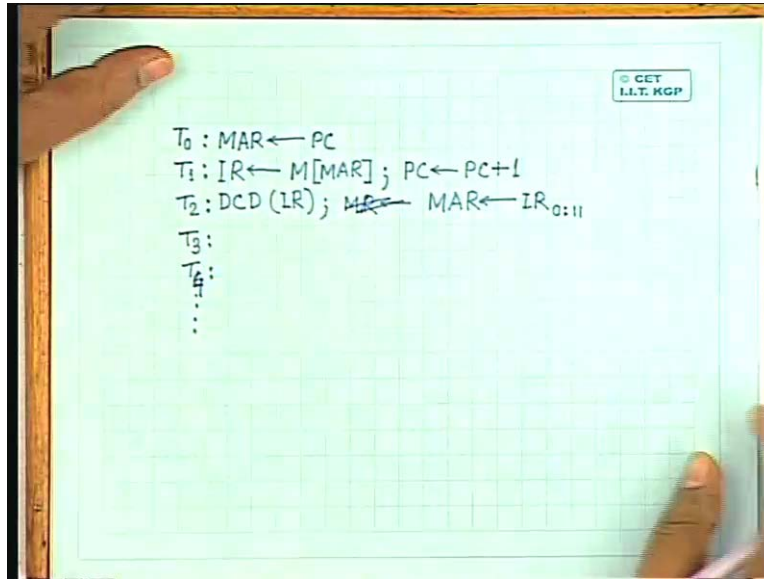 © CET
I.I.T. KGP
T₀ : MAR ← PC
T₁ : IR ← M[MAR] ; PC ← PC+1
T₂ : DCD (IR) ; MAR ← IR₀:₁₁
T₃ :
T₄ :
:
: